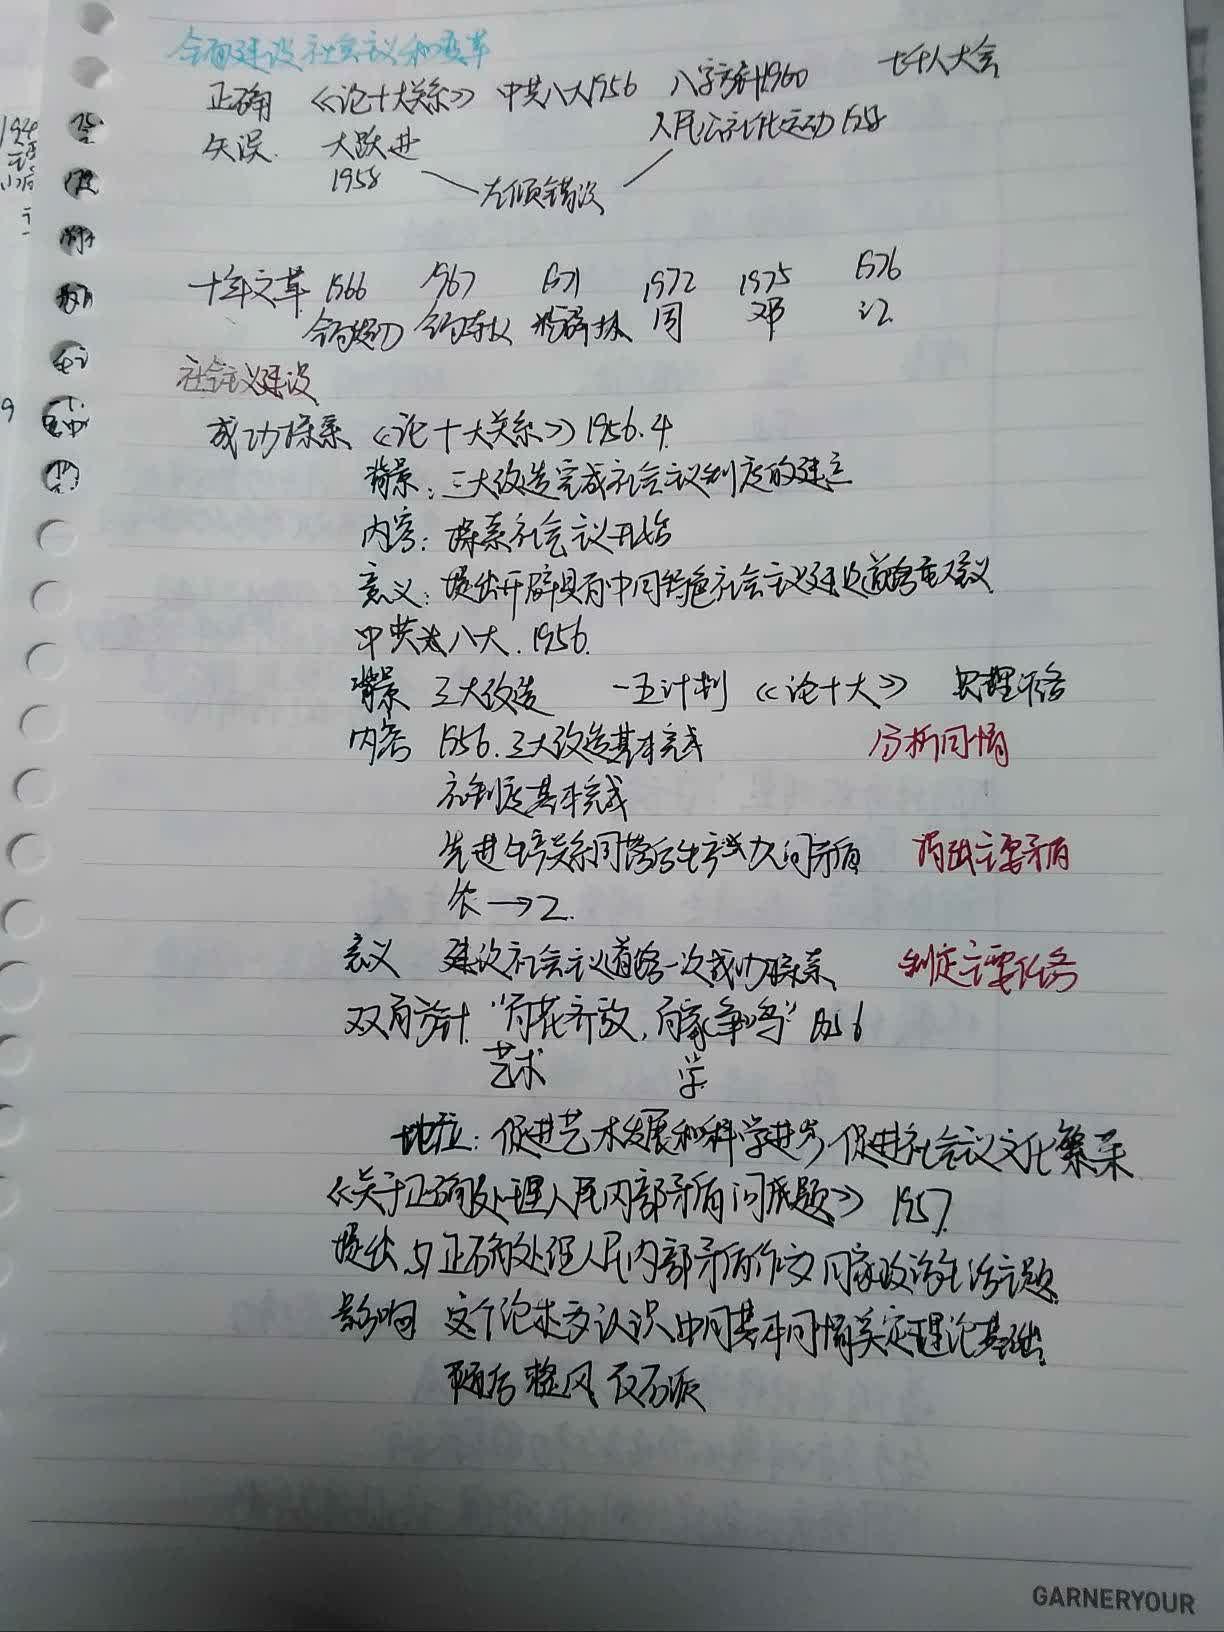 全面建设社会主义和变革
正确 《论十大关系》 中共八大1956 八字方针1960 七千人大会
失误 大跃进 人民公社化运动1958
1958 左倾错误
十年文革 1966 1967 1971 1972 1975 1976
全面发动 全面夺权 粉碎林 周 邓 江
社会主义建设
成功探索 《论十大关系》 1956.4
背景：三大改造完成社会主义制度的建立
内容：探索社会主义开始
意义：提出开辟具有中国特色社会主义建设道路重大意义
中共八大.1956.
背景 三大改造 一五计划 《论十大》
内容 1956.三大改造基本完成 分析国情
社制度基本完成
先进生产关系同落后生产力间矛盾 指出主要矛盾
农→工.
意义 建设社会主义道路一次成功探索 制定主要任务
双百方针 "百花齐放，百家争鸣" 1956
艺术 学
地位：促进艺术发展和科学进步 促进社会主义文化繁荣
《关于正确处理人民内部矛盾问题》 1957
提出 与正确处理人民内部矛盾作文国家政治生活主题
影响 这个论述多认识中国基本国情奠定理论基础
随后整风 反右派
GARNERYOUR